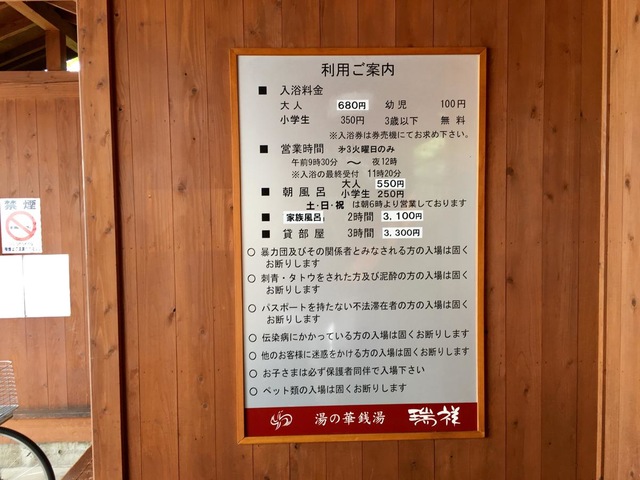 利用ご案内
■ 入浴料金
大人 680円 幼児 100円
小学生 350円 3歳以下 無料
※入浴券は券売機にてお求め下さい。
■ 営業時間 ㊡3火曜日のみ
午前9時30分 〜 夜12時
※入浴の最終受付 11時20分
大人 550円
■ 朝風呂 小学生 250円
土・日・祝 は朝6時より営業しております
■ 家族風呂 2時間 3,100円
■ 貸部屋 3時間 3,300円
○ 暴力団及びその関係者とみなされる方の入場は固く
お断りします
○ 刺青・タトウをされた方及び泥酔の方の入場は固く
お断りします
○ パスポートを持たない不法滞在者の方の入場は固く
お断りします
○ 伝染病にかかっている方の入場は固くお断りします
○ 他のお客様に迷惑をかける方の入場は固くお断りします
○ お子さまは必ず保護者同伴で入場下さい
○ ペット類の入場は固くお断りします
湯の華銭湯 瑞祥
禁煙